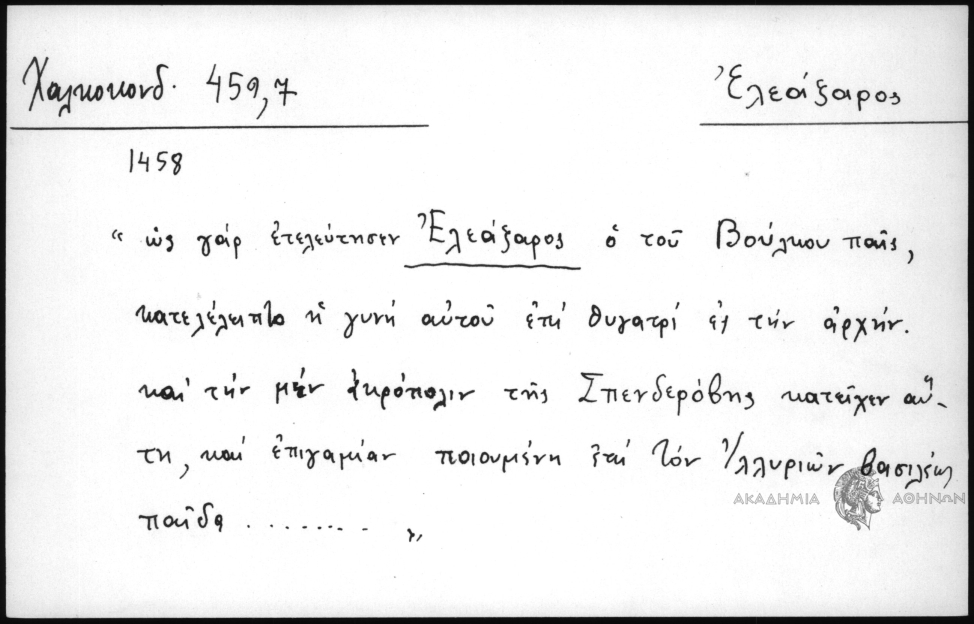 Χαλκοκονδ. 459,7
Ἐλεάζαρος
1458
“ ὡς γάρ ἐτελεύτησεν Ἐλεάζαρος ὁ τοῦ Βούλκου παῖς,
κατελέλειπτο ἡ γυνή αὐτοῦ ἐπί θυγατρί ἐς τήν ἀρχήν.
καί τήν μέν ἀκρόπολιν τῆς Σπενδερόβης κατεῖχεν αὕ-
τη, καί ἐπιγαμίαν ποιουμένη ἐπί τόν Ἰλλυριῶν βασιλέως
παῖδα ........ „
ΑΚΑΔΗΜΙΑ ΑΘΗΝΩΝ